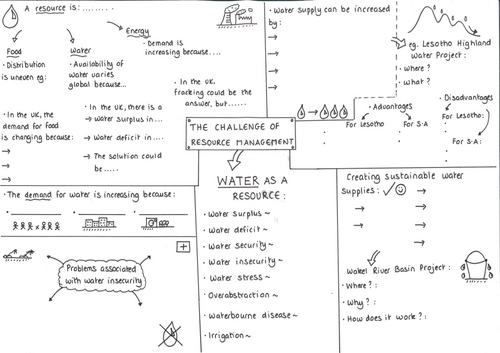 A resource is:.........
Food
Water
Energy
· Distribution
is uneven eg:
· Availability of
water varies
global because...
· Demand is
increasing because....
· In the UK,
fracking could be the
answer, but......
· In the UK, the
demand for food
is changing because:
→
→
→
· In the UK, there is a
→ Water surplus in....
→ Water deficit in....
→ The solution could
be.....
· Water supply can be increased
by:
→
→
→
→
→
eg. Lesotho Highland
Water Project:
· Where?
· What?
Advantages
Disadvantages
For Lesotho
For S.A
For Lesotho:
For S.A:
THE CHALLENGE OF
RESOURCE MANAGEMENT
· The demand for water is increasing because:
Problems associated
with water insecurity
WATER AS A
RESOURCE:
· Water surplus ~
· Water deficit ~
· Water security ~
· Water insecurity ~
· Water stress ~
· Overabstraction ~
· Waterbourne disease ~
· Irrigation ~
Creating sustainable water
supplies:
→
→
→
→
→
Wakel River Basin Project:
· Where?:
· Why?:
· How does it work?: